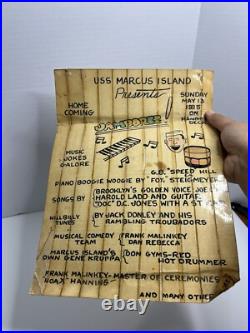 USS MARCUS ISLAND
Presents
HOME COMING
SUNDAY
MAY 13
ON
HANGAR
DECK
JAMBOREE
MUSIC
JOKES
GALORE
G.B. "SPEED" HILL
PIANO BOOGIE WOOGIE BY "FOX" STEIGMEYER
SONGS BY
BROOKLYN'S GOLDEN VOICE JOE
HAROLD LADD AND GUITAR
"DOC" D.C. JONES WITH A
HILLBILLY
TUNES
BY JACK DONLEY AND HIS
RAMBLING TROUBADORS
MUSICAL COMEDY
TEAM
FRANK MALINKEY
DAN REBECCA
MARCUS ISLAND'S
OWN GENE KRUPA
DON GYMS-RED
HOT DRUMMER
FRANK MALINKEY-MASTER OF CEREMONIES
"HOAX" HANNING
AND MANY OTHER